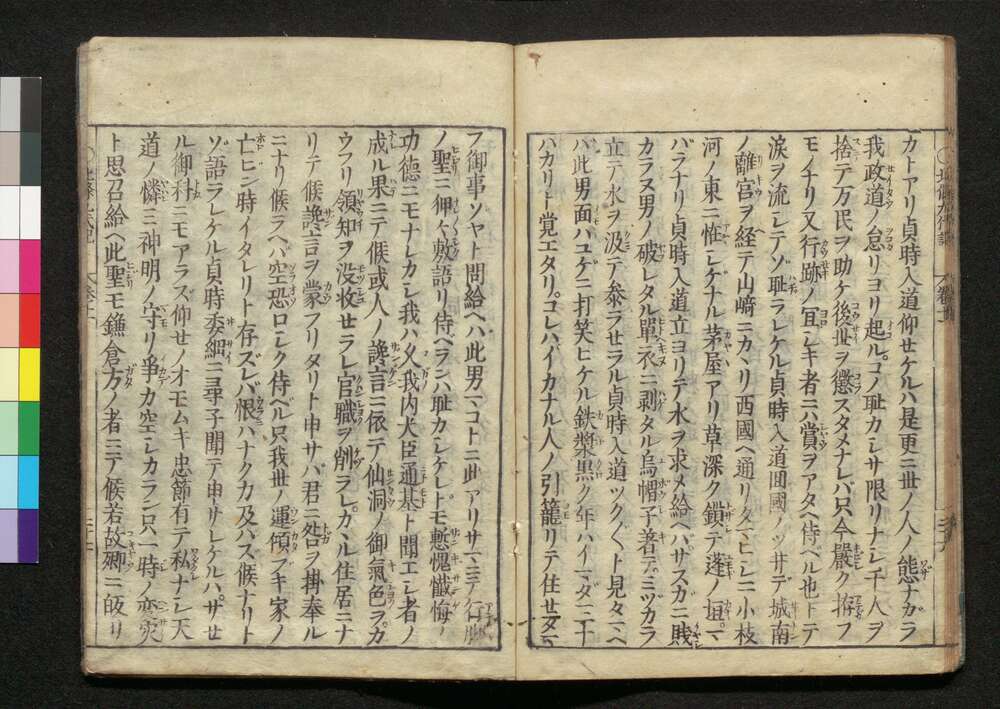 ガトアリ貞時入道仰セケルハ是更ニ世ノ人ノ態ナガラ
我政道ノ怠リヨリ起ル。コノ耻カシサ限リナシ千人ヲ
捨テ万民ヲ助ケ後世ヲ懲スタメナレバ只今嚴ク擯フ
モノナリ又行跡ノ冝シキ者ニハ賞ヲアタヘ侍ベル也トテ
涙ヲ流シテゾ耻ラレケル貞時入道囬國ノツ井デ城南
ノ離宮ヲ経テ山﨑ニカヽリ西國ヘ通リタマヒシニ小枝
河ノ東ニ恠シゲナル茅屋アリ草深ク鎖テ蓬ノ垣マ
バラナリ貞時入道立ヨリテ水ヲ求メ給ヘバサスガニ賎
カラヌ男ノ破レタル單衣ニ剥タル烏帽子著テミヅカラ
立テ水ヲ汲テ参ラセラル貞時入道ツクヾクト見タマヘ
バ此男面ハユゲニ打笑ヒケル鉄漿黒ク年ハイマダ三十
バカリト覚エタリ。コレハイカナル人ノ引籠リテ住セタマ
フ御事ソヤト問給ヘハ此男マコトニ此アリサマニテ行脚
ノ聖ニ仰々敷語リ侍ヘランハ耻カシケレトモ慙愧懺悔ノ
功徳ニモナレカシ我ハ久我内大臣通基ト聞エシ者ノ
成ル果ニテ候或人ノ讒言ニ依テ仙洞ノ御氣色ヲカ
ウフリ領知ヲ没收セラレ官職ヲ削ラレ。カヽル住居ニナ
リテ候讒言ヲ蒙フリタリト申サバ君ニ処ヲ掛奉ル
ニナリ候ラヘバ空恐ロシク侍ベル只我世ノ運傾ブキ家ノ
亡ビン時イタレリト存ズレバ恨ハナクカ及ハズ候ナリト
ゾ語ラレケル貞時委細ニ尋子聞テ申サレケルハサセ
ル御科ニモアラズ仰セノオモムキ忠節有テ私ナシ天
道ノ憐ミ神明ノ守リ爭カ空シカラン只一時ノ変災
ト思召給ヘ此聖モ鎌倉方ノ者ニテ候若故郷ニ皈リ